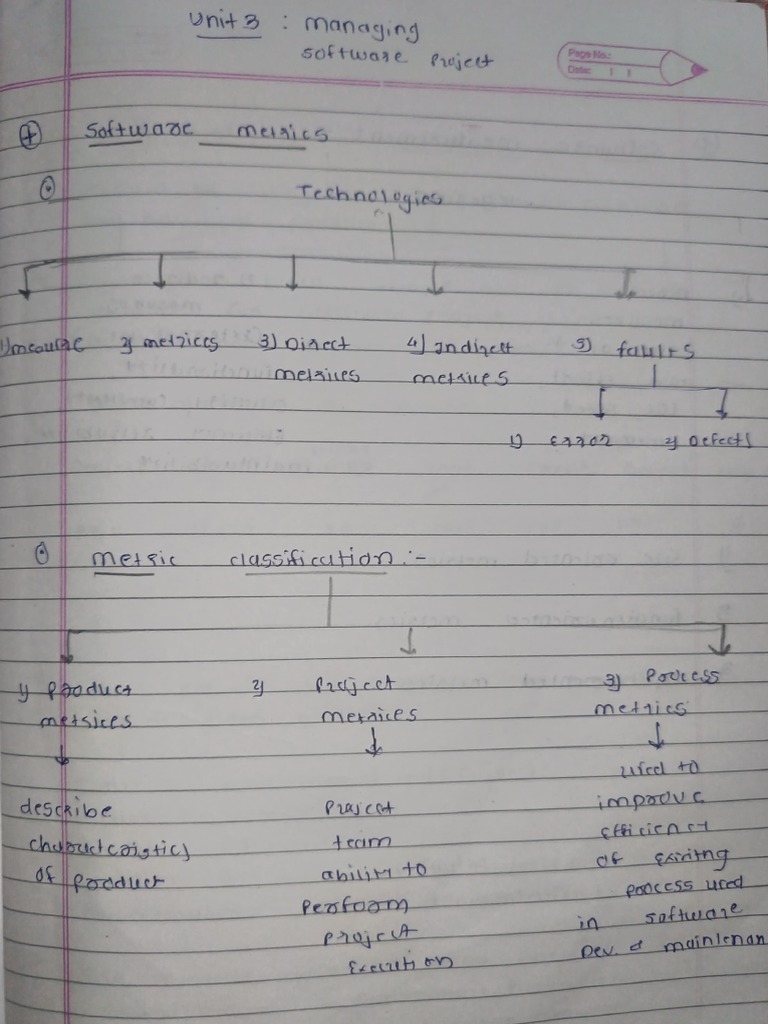 Unit 3 : managing
software project
Page No.:
Date: | |
software metrics
Technologies
1) measure 2) metrices 3) Direct 4) Indirect 5) faults
metrices metrices
1) Error 2) Defects
metric classification :-
1) Product 2) Project 3) Process
metrices metrices metrics
used to
describe Project improve
characteristics team efficiency
of product ability to of existing
perform process used
project in software
Execution Dev. & maintenan